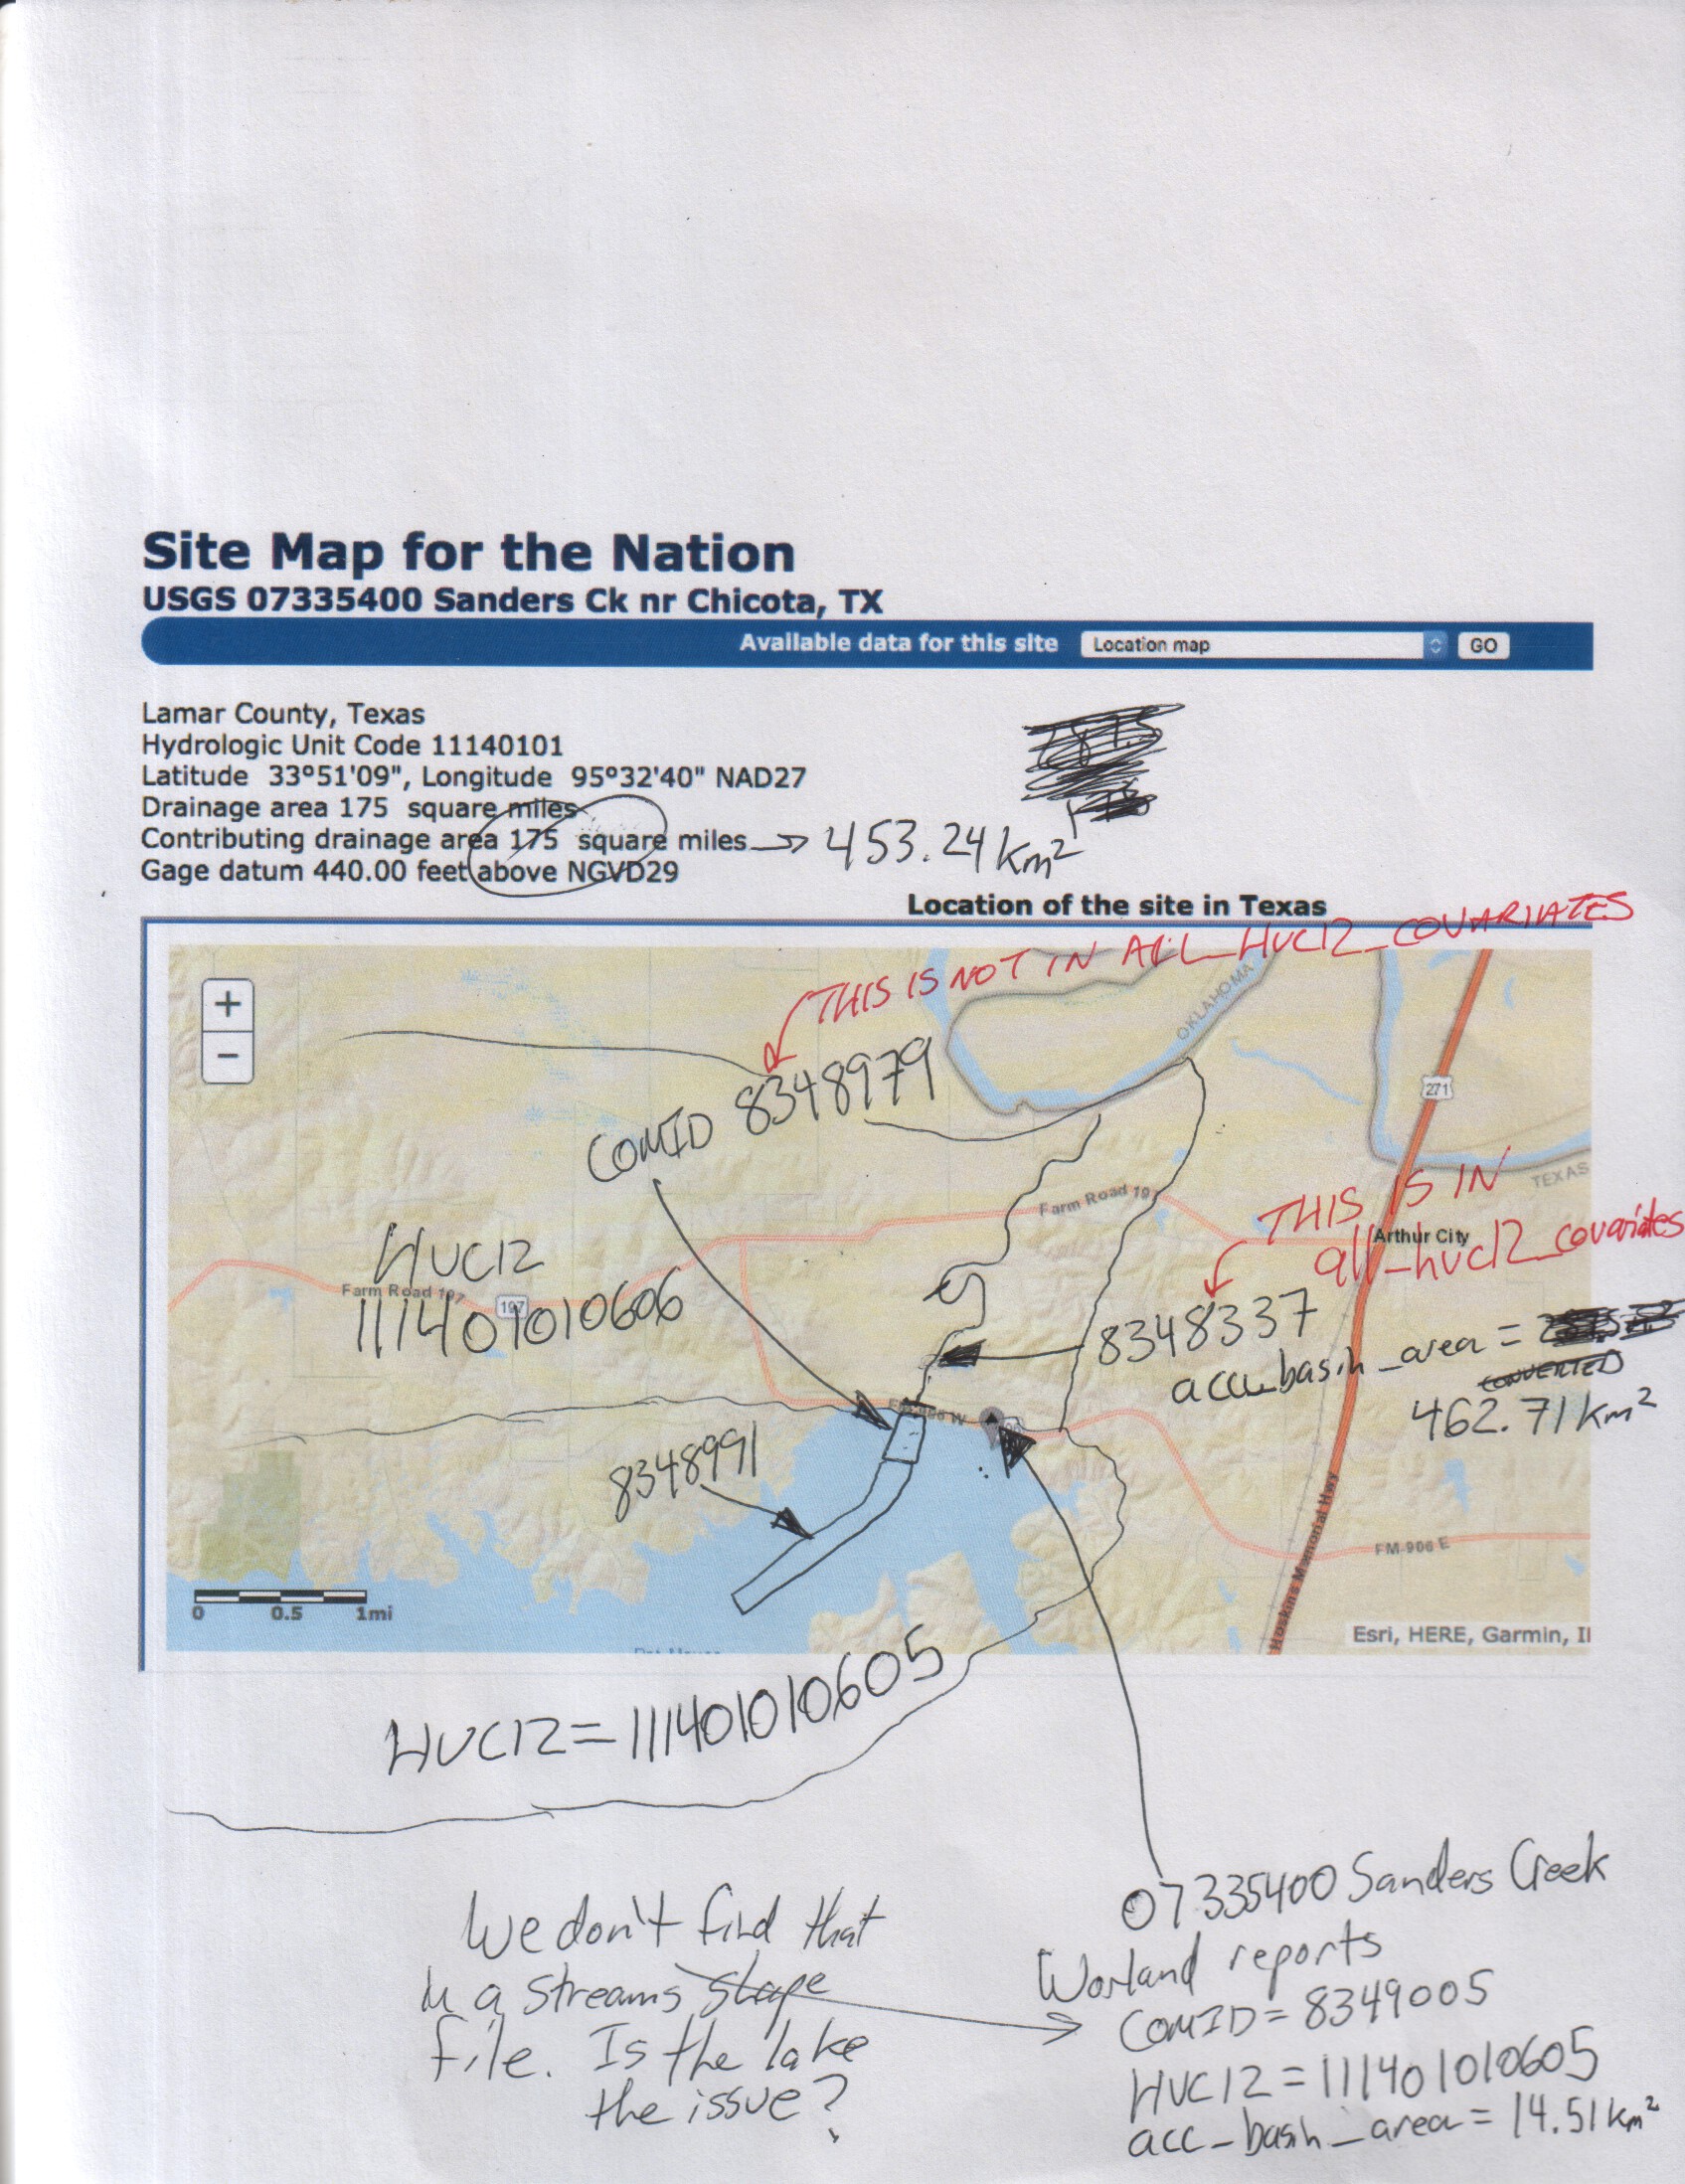 Site Map for the Nation
USGS 07335400 Sanders Ck nr Chicota, TX
Available data for this site Location map GO
Lamar County, Texas
Hydrologic Unit Code 11140101
Latitude 33°51'09", Longitude 95°32'40" NAD27
Drainage area 175 square miles
Contributing drainage area 175 square miles → 453.24 km²
Gage datum 440.00 feet above NGVD29
Location of the site in Texas
THIS IS NOT IN ALL_HUC12_COVARIATES
+
−
OKLAHOMA
COMID 8348979
271
TEXAS
Farm Road 19
THIS IS IN
all_huc12_covariates
Arthur City
HUC12
Farm Road 197
197
111401010606
8348337
acc_basin_area =
CONVERTED
462.71 km²
FM-906 W
8348991
Hoskins Memorial Hwy
FM-906 E
0 0.5 1mi
Esri, HERE, Garmin, I
HUC12=111401010605
07335400 Sanders Creek
We don't find that
in a streams shape
file. Is the lake
the issue?
Worland reports
COMID = 8349005
HUC12 = 111401010605
acc_basin_area = 14.51 km²